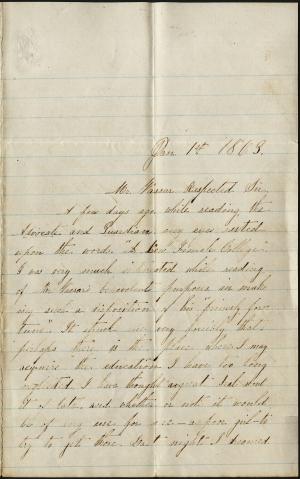 Jan 1st 1863.
Mr. Vassar Respected Sir,
A few days ago while reading the
Advocate and Guardian my eyes rested
upon the words "A New Female College."
I was very much interested while reading
of Mr Vassar benevolent purpose in mak
ing such a disposition of his princely for
tune. It struck me very forcibly that
perhaps this is the place where I may
acquire the education I have too long
neglected I have thought a great deal about
it of late, and whether or not it would
be of any use for me—a poor girl—to
try to get there. Last night I dreamed